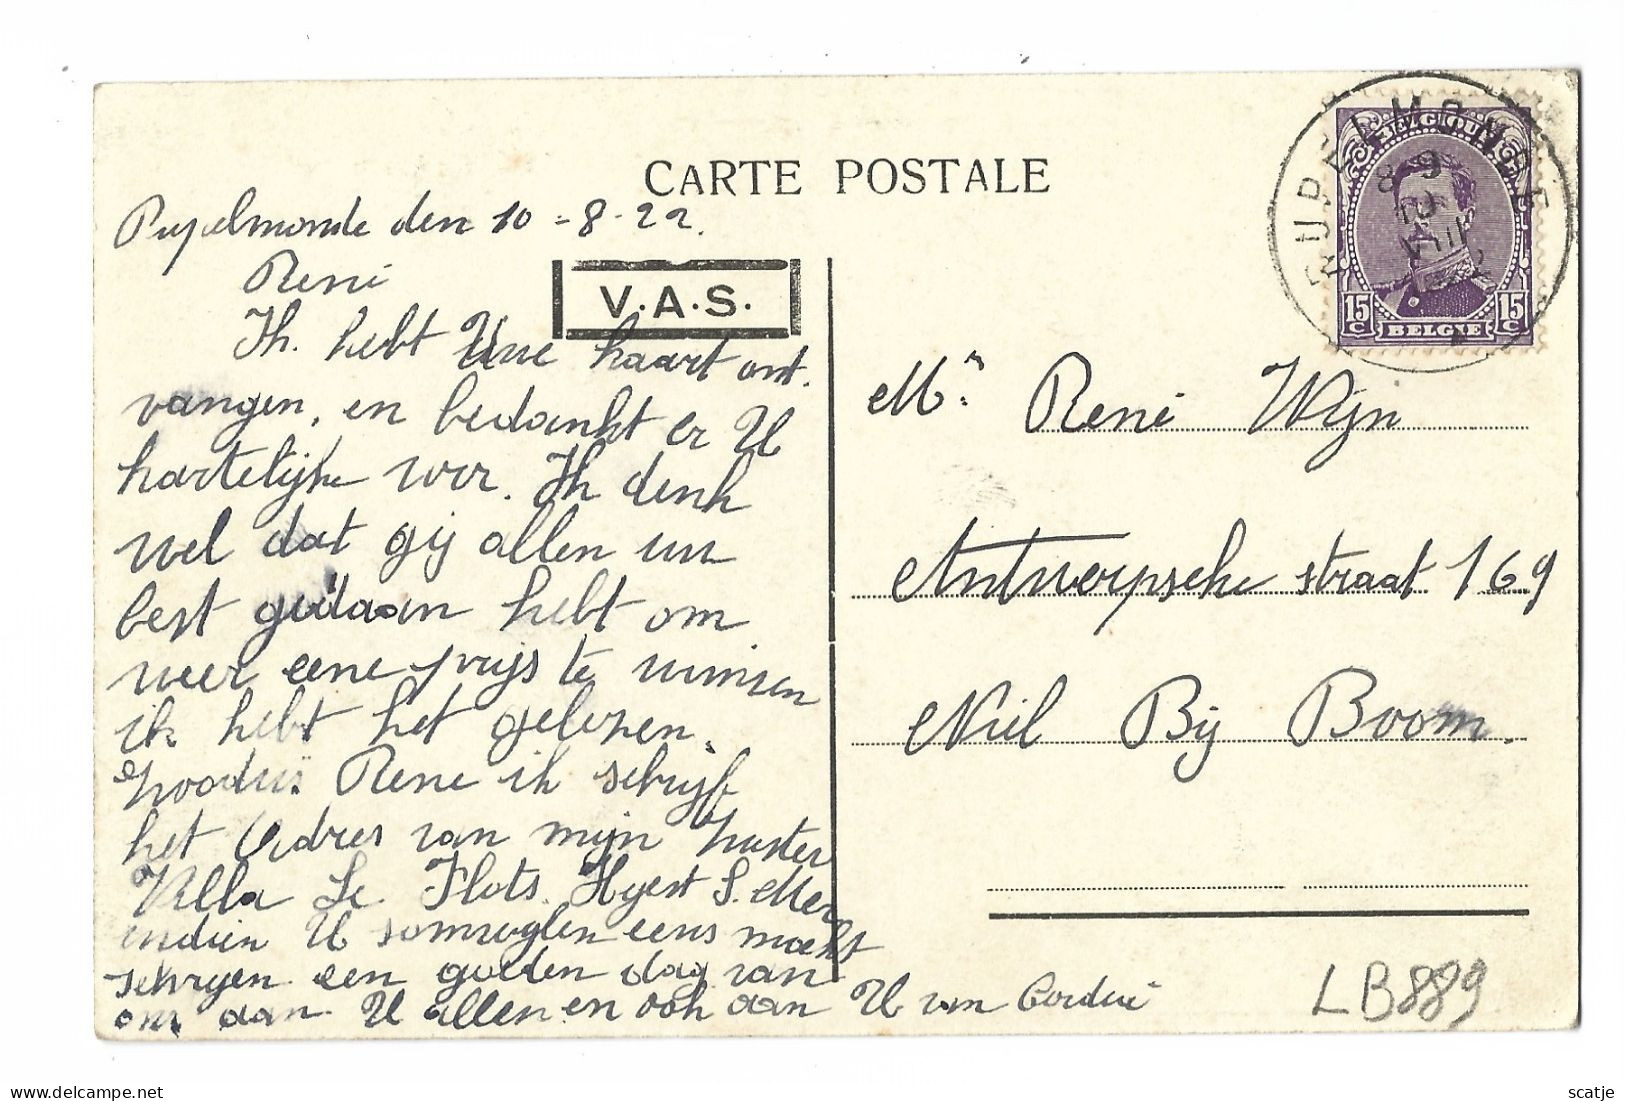 CARTE POSTALE
Rupelmonde den 10 - 8 - 22.
René
V.A.S.
Ik hebt Uwe kaart ont.
vangen, en bedankt er U
hartelijke voor. Ik denk
wel dat gij allen uw
best gedaan hebt om
weer eene prijs te winnen
ik hebt het gelezen.
René ik schrijf
het Adres van mijn zuster
Villa Le Flots. Heyst S. Mer
indien U somweglen eens mocht
schryen een goeden dag van
om aan U allen en ook aan U van Cordui
RUPELMONDE
8-9
10
VIII
1922
BELGIQUE
15 C
BELGIE
15 C
Mr. René Wijn
Antwerpsche straat 169
Niel Bij Boom.
LB889
scatje